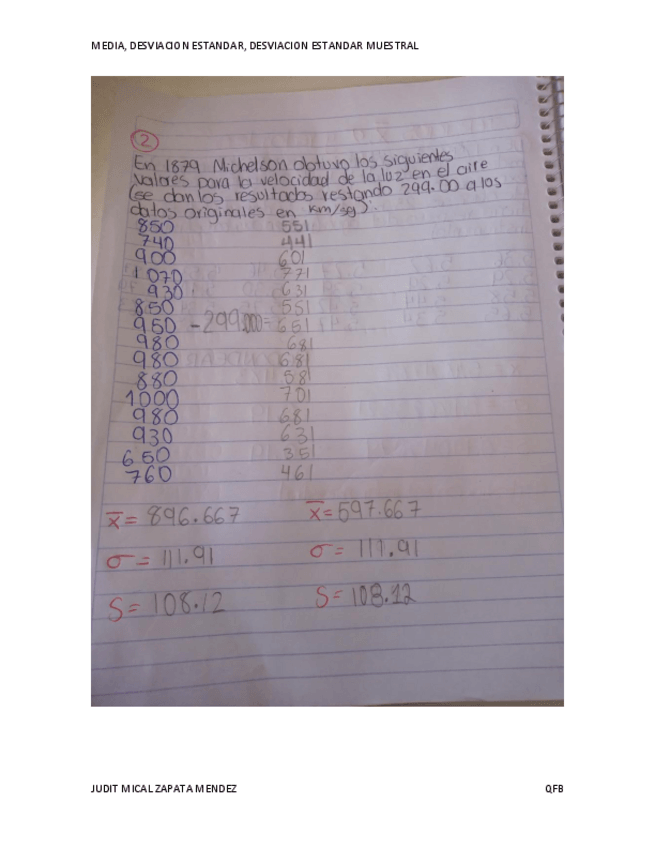 MEDIA, DESVIACION ESTANDAR, DESVIACION ESTANDAR MUESTRAL
2
En 1879 Michelson obtuvo los siguientes
valores para la velocidad de la luz en el aire
(se dan los resultados restando 299.00 a los
datos originales en km/sg):
850 551
740 441
900 601
1 070 771
930 631
850 551
950 - 299.000= 651
980 681
980 681
880 581
1000 701
980 681
930 631
650 351
760 461
x̄= 896.667 x̄= 597.667
σ= 111.91 σ= 111.91
S= 108.12 S= 108.12
JUDIT MICAL ZAPATA MENDEZ QFB